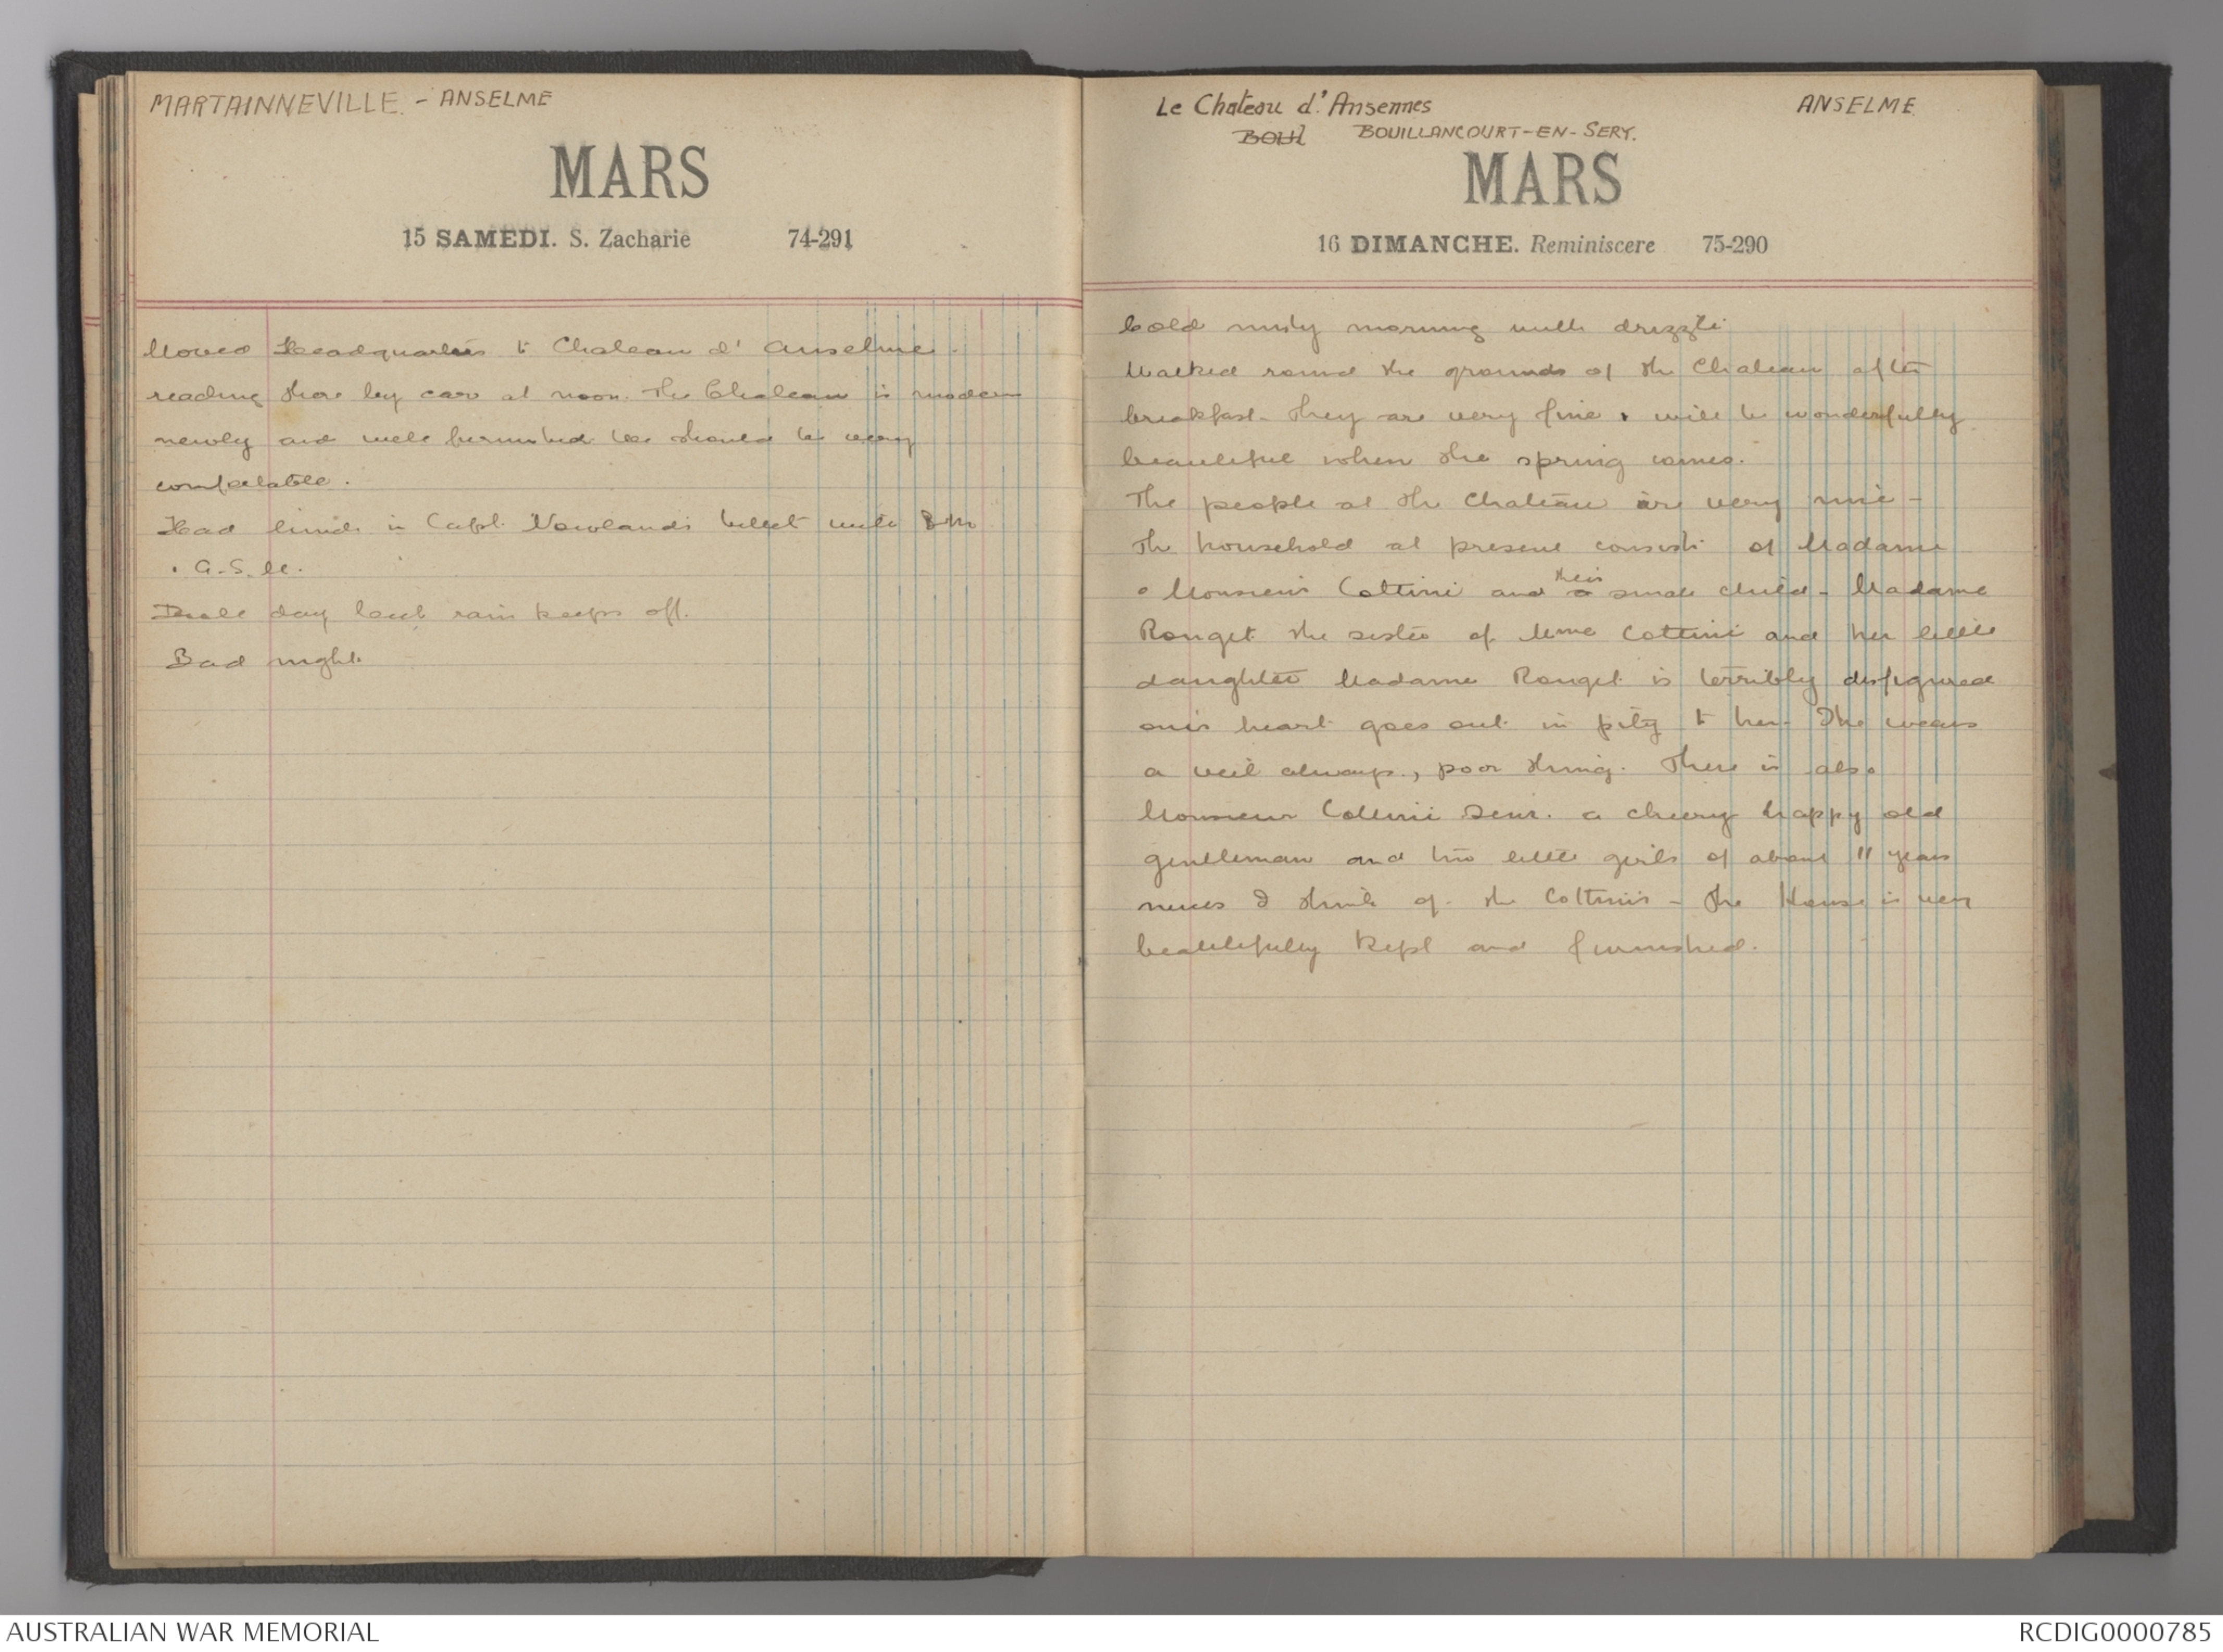 MARTAINNEVILLE. - ANSELME
MARS
15 SAMEDI. S. Zacharie 74-291
Moved Headquarters to Chateau d' Anselme.
reaching there by car at noon. The Chateau is modern
newly and well furnished. We should be very
comfortable.
Had lunch in Capt. Newlands billet with
& A.S.M.
Dull day but rain keeps off.
Bad night.
Le Chateau d'Ansennes ANSELME
BOUI BOUILLANCOURT-EN-SERY.
MARS
16 DIMANCHE. Reminiscere 75-290
Cold misty morning with drizzle
Walked round the grounds of the Chateau after
breakfast. They are very fine & will be wonderfully
beautiful when the spring comes.
The people at the Chateau are very nice -
The household at present consists of Madame
& Monsieur Cottini and a their small child - Madame
Rouget the sister of Mme Cottini and her little
daughter Madame Rouget is terribly disfigured
one's heart goes out in pity to her. She wears
a veil always, poor thing. There is also
Monsieur Cottini Senr. a cheery happy old
gentleman and two little girls of about 11 years
nieces I think of the Cottinis - The House is very
beautifully kept and furnished.
AUSTRALIAN WAR MEMORIAL
RCDIG0000785